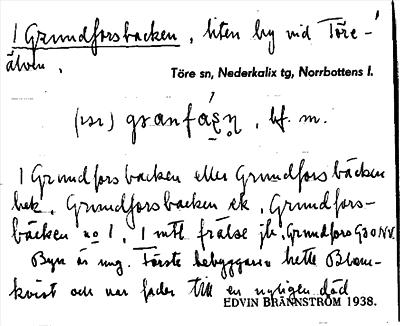 1 Grundforsbacken, liten by vid Töre-
älven.
Töre sn, Nederkalix tg, Norrbottens l.
bf. m.
1 Grundforsbacken eller Grundforsbäcken
bek. Grundforsbacken ek. Grundfors-
bäcken no 1, 1 mtl frälse jb. Grundfors GSONV.
Byn är ung. Förste bebyggaren hette Blom-
kvist och var fader till en nyligen död
EDVIN BRÄNNSTRÖM 1938.